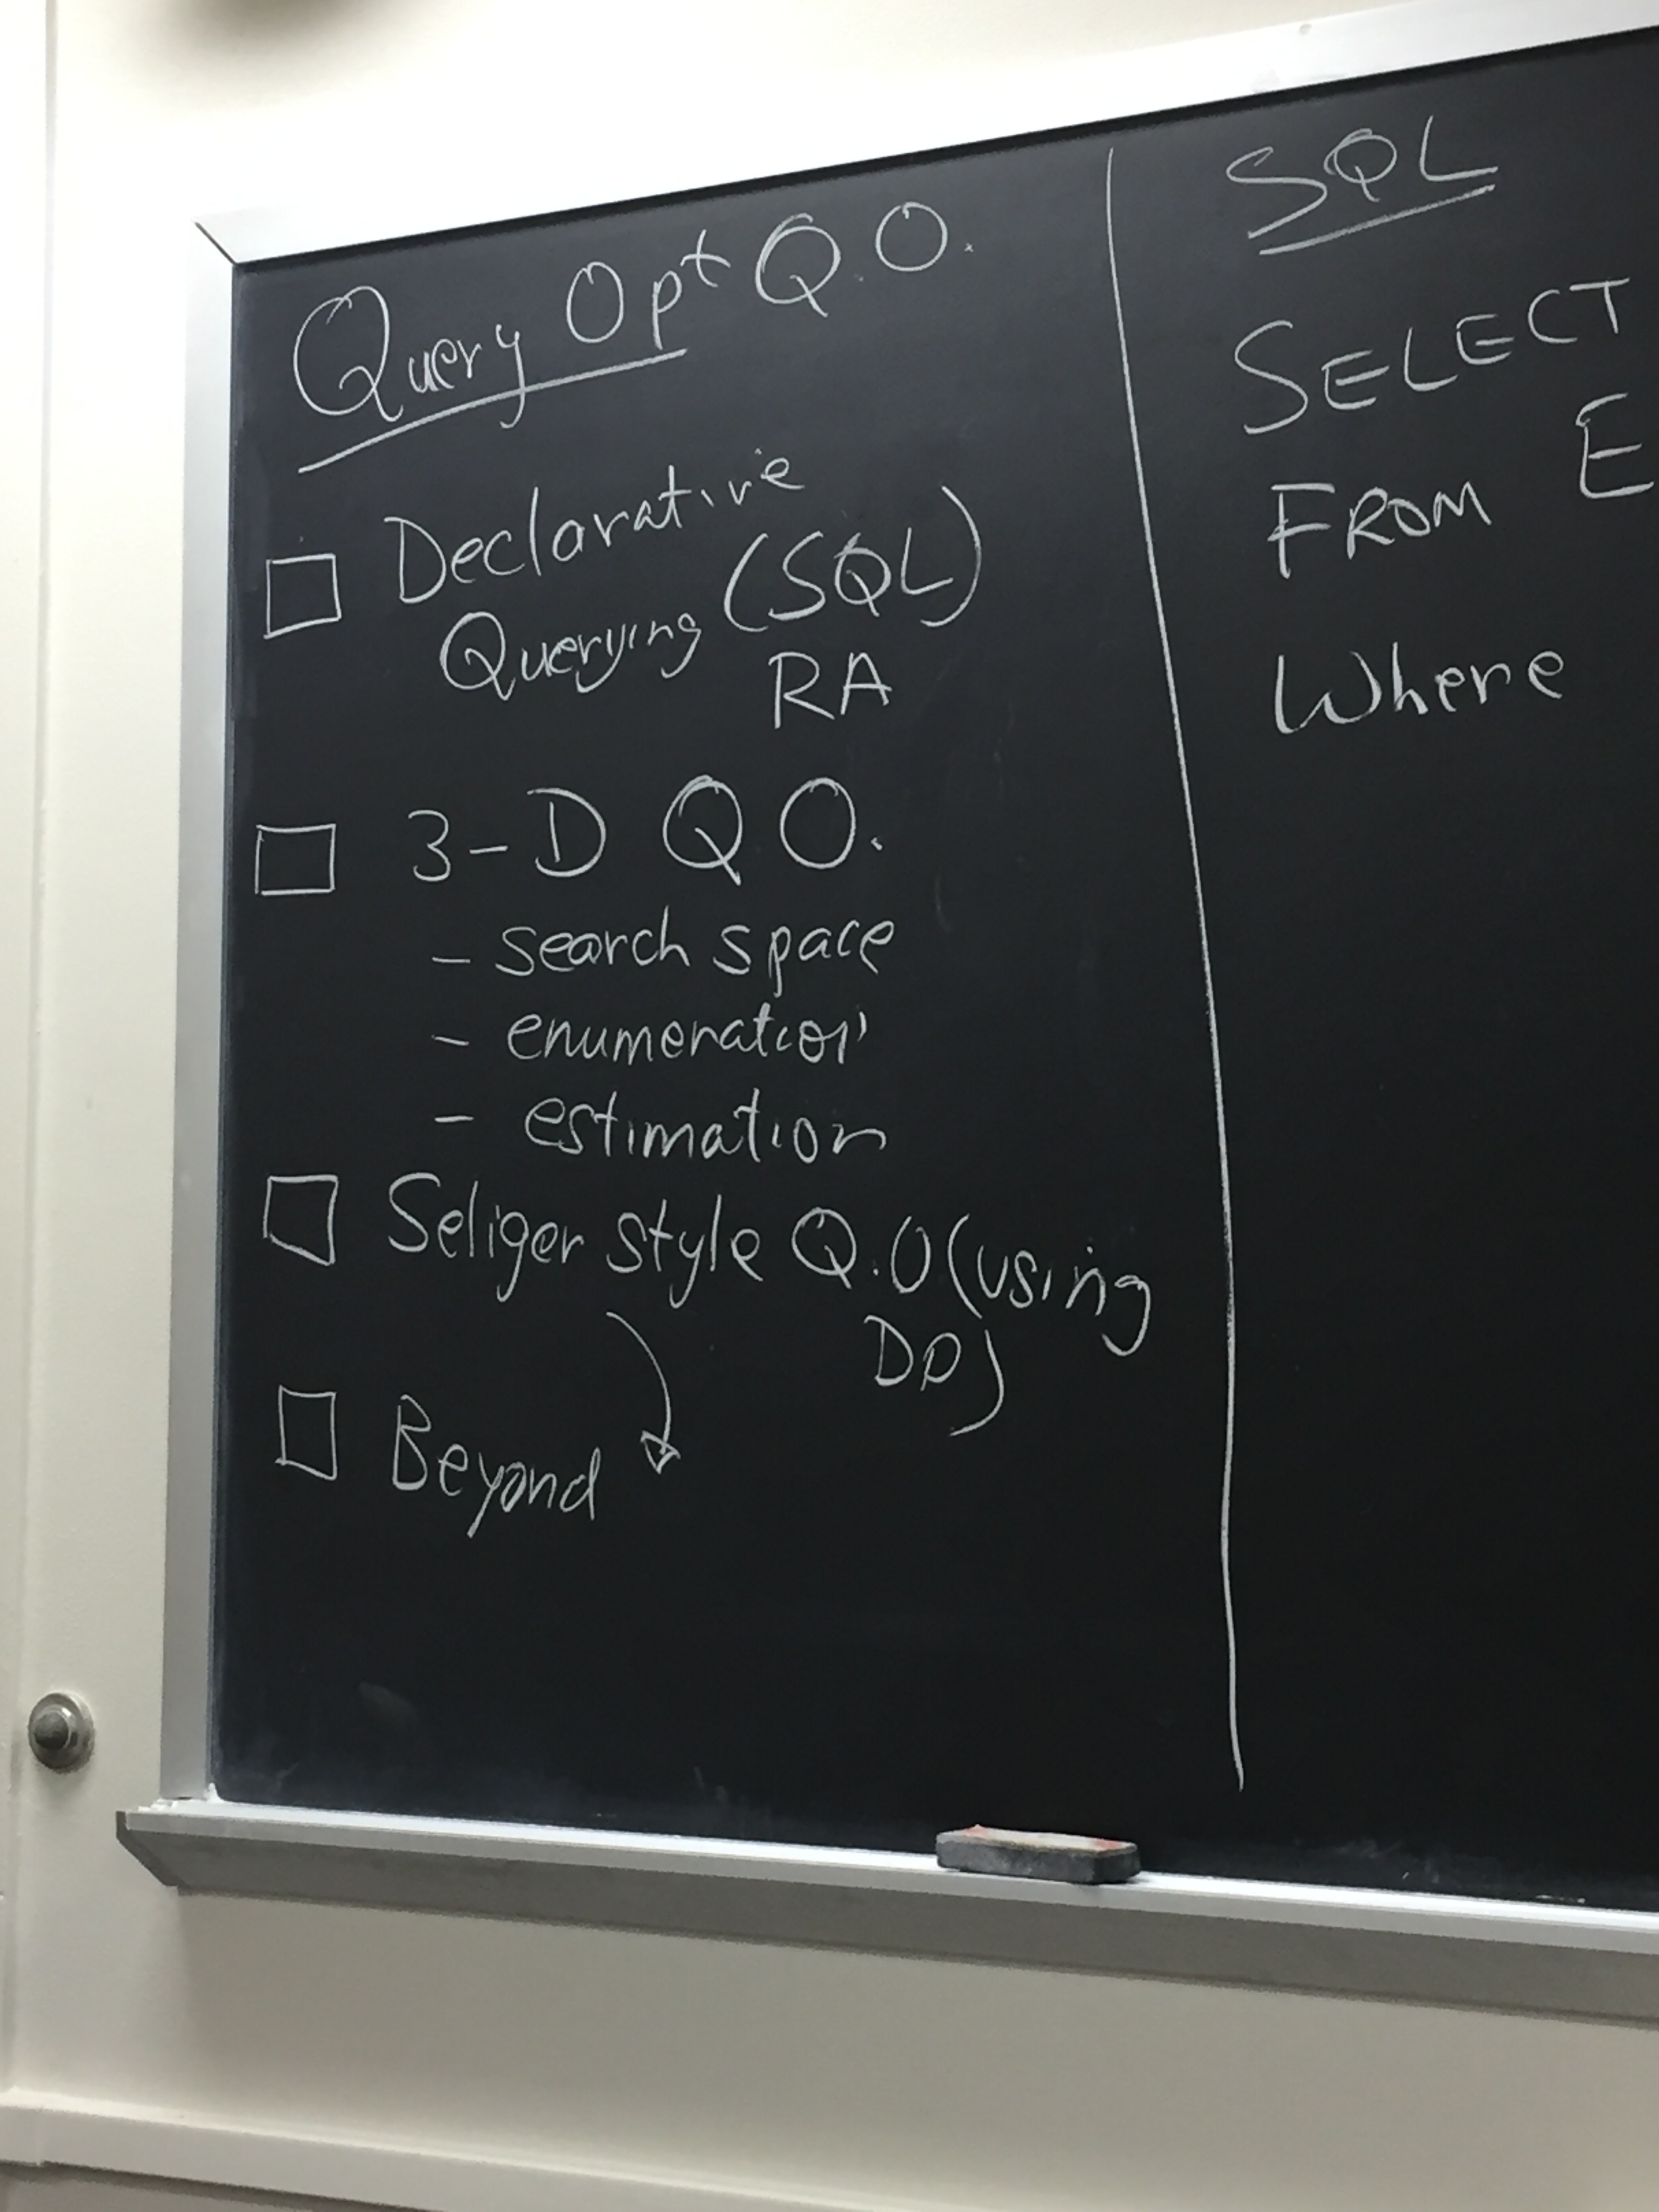 Query Opt Q.O.
Declarative
Querying (SQL)
RA
3-D QO.
- search space
- enumeration
- estimation
Seliger style Q.O (using
DP)
Beyond
SQL
SELECT
E
FROM
Where